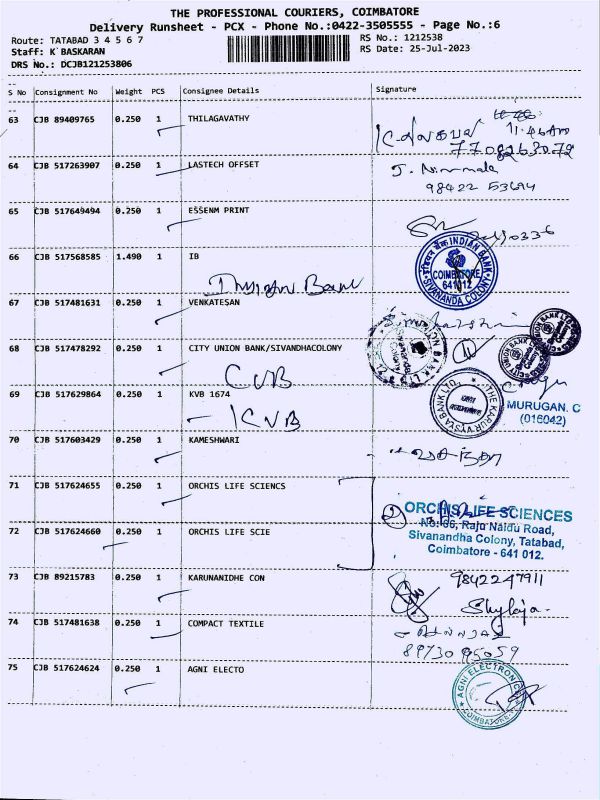 THE PROFESSIONAL COURIERS, COIMBATORE
Delivery Runsheet - PCX - Phone No.:0422-3505555 - Page No.:6
Route: TATABAD 3 4 5 6 7
RS No.: 1212538
Staff: K BASKARAN
RS Date: 25-Jul-2023
DRS No.: DCJB121253806
S No Consignment No Weight PCS Consignee Details Signature
63 CJB 89409765 0.250 1 THILAGAVATHY
11.46am
64 CJB 517263907 0.250 1 LASTECH OFFSET
J. Nirmala
98422 53694
65 CJB 517649494 0.250 1 ESSENM PRINT
66 CJB 517568585 1.490 1 IB
Indian Bank
INDIAN BANK
COIMBATORE
641012
SIVANANDA COLONY
67 CJB 517481631 0.250 1 VENKATESAN
68 CJB 517478292 0.250 1 CITY UNION BANK/SIVANDHACOLONY
CUB
69 CJB 517629864 0.250 1 KVB 1674
KVB
THE KARUR VYSYA BANK LTD.
MURUGAN. C
(016042)
70 CJB 517603429 0.250 1 KAMESHWARI
71 CJB 517624655 0.250 1 ORCHIS LIFE SCIENCS
72 CJB 517624660 0.250 1 ORCHIS LIFE SCIE
2
ORCHIS LIFE SCIENCES
No: 66, Raju Naidu Road,
Sivanandha Colony, Tatabad,
Coimbatore - 641 012.
73 CJB 89215783 0.250 1 KARUNANIDHE CON
9842247911
Shylaja.
74 CJB 517481638 0.250 1 COMPACT TEXTILE
8973095059
75 CJB 517624624 0.250 1 AGNI ELECTO
AGNI ELECTRONICS
COIMBATORE